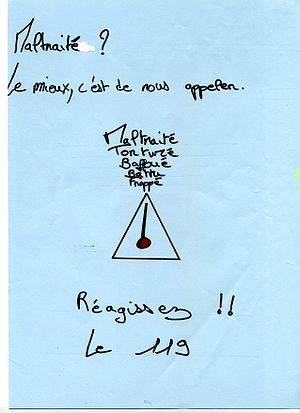 Maltraité ?
Le mieux, c'est de nous appeler.
Maltraité
Torturé
Bafoué
Battu
Frappé
Réagissez !!
Le 119